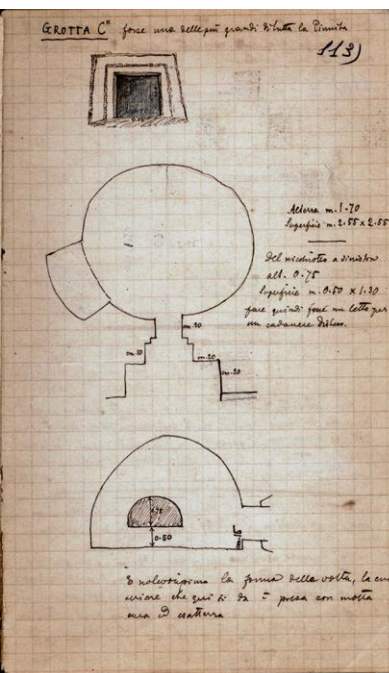 GROTTA C" forse una delle più grandi di tutta la Pinnita
113)
Altezza m. 1.70
Superficie m. 2.55 x 2.55
Del nicchiotto a sinistra
alt. 0.75
Superficie m. 0.50 x 1.30
pare quindi fosse un letto per
un cadavere disteso.
m.20
m.20
m.20
0.50
È notevolissima la forma della volta, la cui
che qui si dà è presa con molta
cura ed esattezza